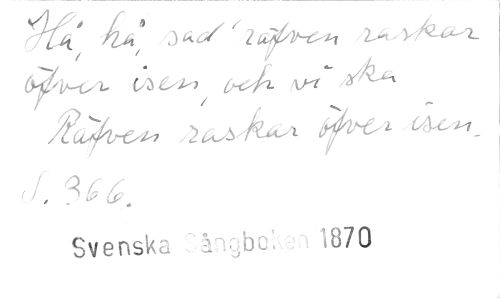 Hå, hå, sad' räfven raskar
öfver isen, och vi ska
Räfven raskar öfver isen.
S. 366.
Svenska Sångboken 1870